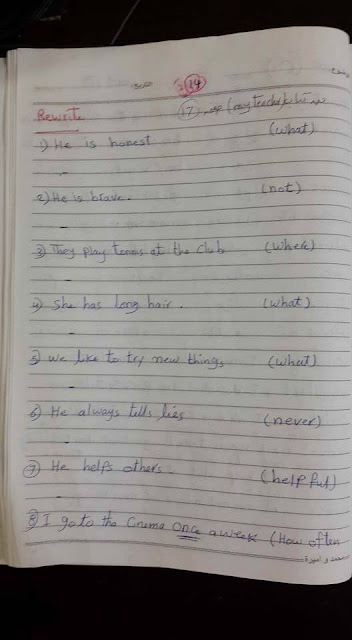 14
Rewrite
17
1) He is honest (what)
2) He is brave. (not)
3) They play tennis at the club (where)
4) She has long hair. (what)
5) we like to try new things (what)
6) He always tells lies (never)
7) He helps others. (helpful)
8) I go to the Cinema once a week (How often
محمد و أميرة